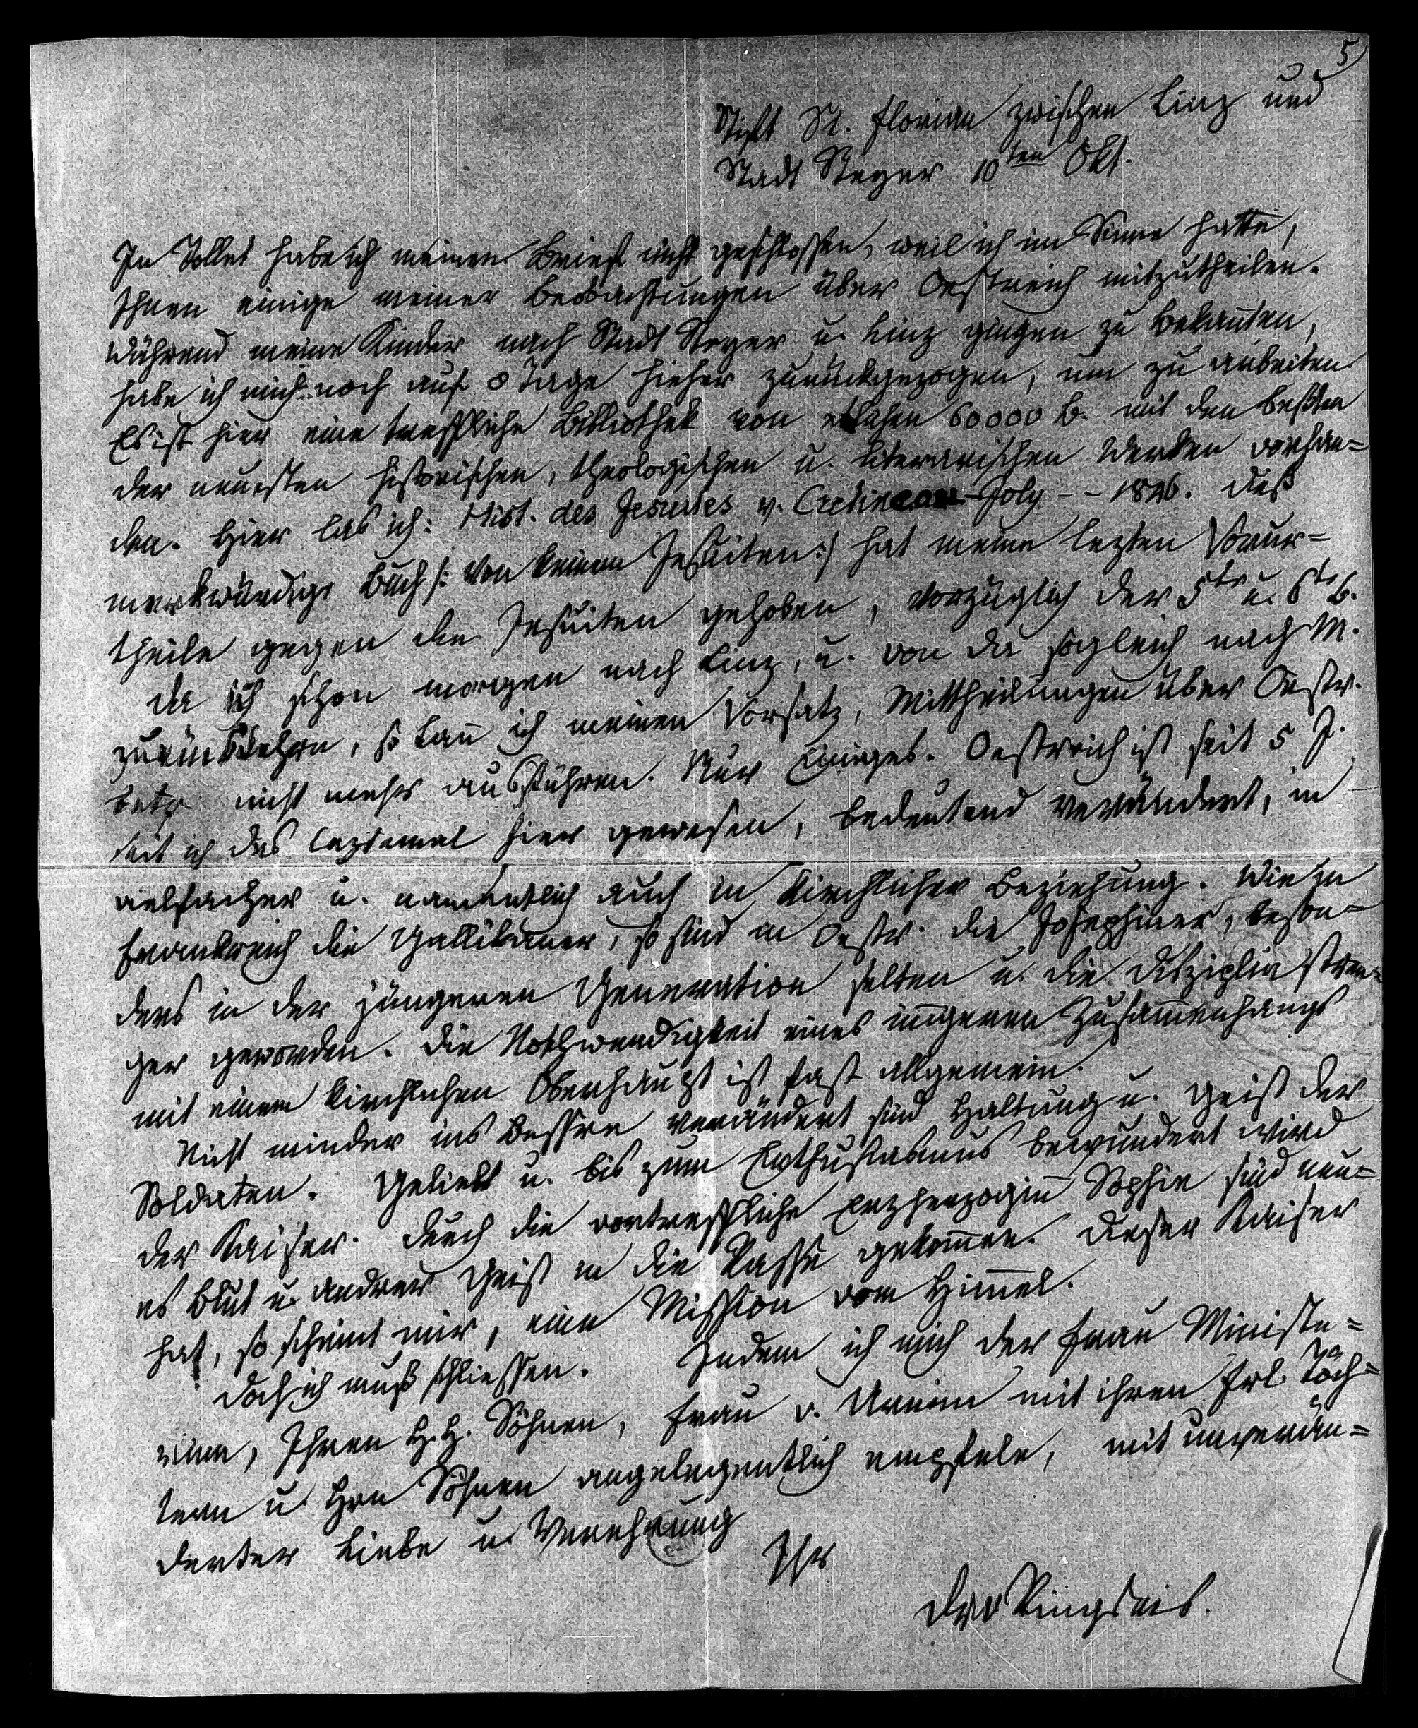 5
Stift St. Florian zwischen Linz und
Stadt Steyer 10ten Okt.
In Tollet habe ich meinen Brief nicht geschlossen, weil ich im Sinne hatte,
Ihnen einige meiner Beobachtungen über Oestreich mitzutheilen.
Während meine Kinder nach Stadt Steyer u. Linz gingen zu Bekannten,
habe ich mich noch auf 8 Tage hieher zurückgezogen, um zu arbeiten
Es ist hier eine treffliche Bibliothek von etlichen 60000 B. mit den besten
der neuesten historischen, theologischen u. literarischen Werken vorhan=
den. Hier las ich: Hist. des Jesuites v. Cretineau-Joly -- 1846. Dieß
merkwürdige Buch /: von keinem Jesuiten :/ hat meine lezten Vorur=
theile gegen die Jesuiten gehoben, vorzüglich der 5te u. 6te B.
Da ich schon morgen nach Linz, u. von da sogleich nach M.
zurückkehre, so kann ich meinen Vorsatz, Mittheilungen über Oestr.
betr. nicht mehr ausführen. Nur Einiges. Oestreich ist seit 5 J.
seit ich das leztemal hier gewesen, bedeutend verändert, in
vielfacher u. namentlich auch in kirchlicher Beziehung. Wie in
Frankreich die Gallikaner, so sind in Oestr. die Josephiner, beson=
ders in der jüngeren Generation selten u. die Disziplin stren=
ger geworden. Die Nothwendigkeit eines innigeren Zusammenhangs
mit einem kirchlichen Oberhaupt ist fast allgemein.
Nicht minder ins Bessre verändert sind Haltung u. Geist der
Soldaten. Geliebt u. bis zum Enthusiasmus bewundert wird
der Kaiser. Durch die vortreffliche Erzherzogin Sophie sind neu=
es Blut u. andrer Geist in die Rasse gekommen. Dieser Kaiser
hat, so scheint mir, eine Mission vom Himmel.
Doch ich muß schliessen. Indem ich mich der Frau Ministe=
rinn, Ihren H.H. Söhnen, Frau v. Arnim mit ihren Frl. Töch=
tern u. Hrn Söhnen angelegentlich empfele, mit unverän=
derter Liebe u. Verehrung
Ihr
Dr v Ringseis.